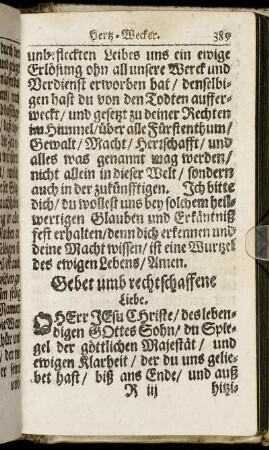 Hertz-Wecker. 389
unbefleckten Leibes uns ein ewige
Erlösung ohn all unsere Werck und
Verdienst erworben hat / denselbi-
gen hast du von den Todten auffer-
weckt / und gesetzt zu deiner Rechten
im Himmel / über alle Fürstenthum /
Gewalt / Macht / Herrschafft / und
alles was genannt mag werden /
nicht allein in dieser Welt / sondern
auch in der zukünfftigen. Ich bitte
dich / du wollest uns bey solchem heil-
wertigen Glauben und Erkäntniß
fest erhalten / denn dich erkennen und
deine Macht wissen / ist eine Wurtzel
des ewigen Lebens / Amen.
Gebet umb rechtschaffene
Liebe.
O HErr JEsu CHriste / des leben-
digen GOttes Sohn / du Spie-
gel der göttlichen Majestät / und
ewigen Klarheit / der du uns gelie-
bet hast / biß ans Ende / und auß
R iij hitzi-